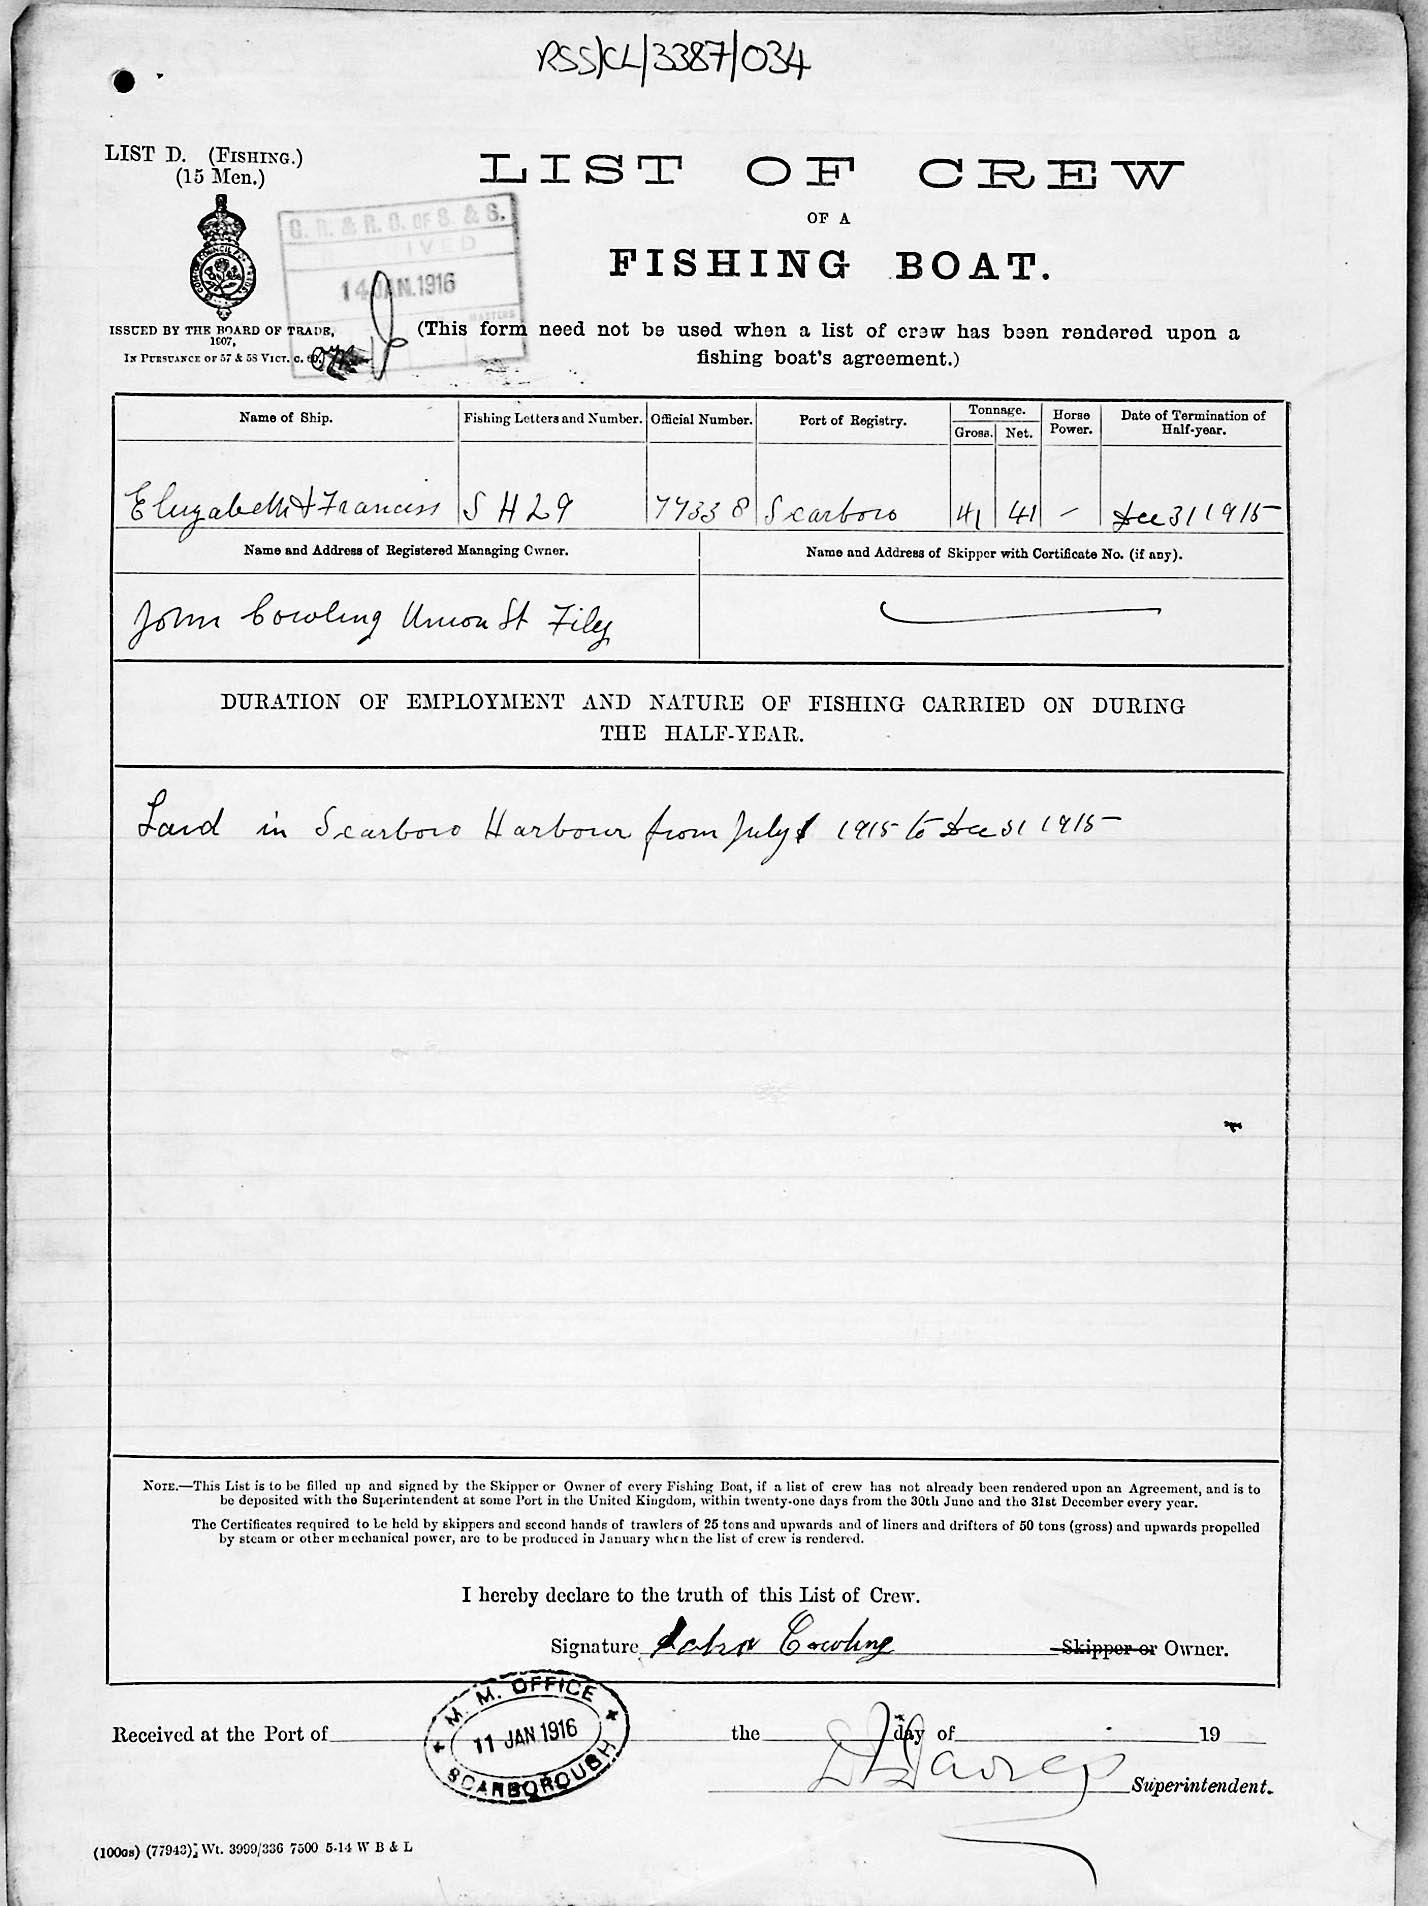 RSS/CL/3387/034
LIST D. (FISHING.)
(15 Men.)
LIST OF CREW
OF A
FISHING BOAT.
G. R. & R. G. OF S. & S.
14 JAN. 1916
MASTERS
ISSUED BY THE BOARD OF TRADE,
1907,
IN PURSUANCE OF 57 & 58 VICT. C. 60.
(This form need not be used when a list of crew has been rendered upon a
fishing boat's agreement.)
Name of Ship. Fishing Letters and Number. Official Number. Port of Registry. Tonnage. Gross. Net. Horse Power. Date of Termination of Half-year.
Elizabeth & Francis S H 29 77338 Scarboro 41 41 - Dec 31 1915
Name and Address of Registered Managing Owner. Name and Address of Skipper with Certificate No. (if any).
John Cowling Union St Filey
DURATION OF EMPLOYMENT AND NATURE OF FISHING CARRIED ON DURING
THE HALF-YEAR.
Laid in Scarboro Harbour from July 1 1915 to Dec 31 1915
NOTE.—This List is to be filled up and signed by the Skipper or Owner of every Fishing Boat, if a list of crew has not already been rendered upon an Agreement, and is to
be deposited with the Superintendent at some Port in the United Kingdom, within twenty-one days from the 30th June and the 31st December every year.
The Certificates required to be held by skippers and second hands of trawlers of 25 tons and upwards and of liners and drifters of 50 tons (gross) and upwards propelled
by steam or other mechanical power, are to be produced in January when the list of crew is rendered.
I hereby declare to the truth of this List of Crew.
Signature John Cowling Skipper or Owner.
M. M. OFFICE
11 JAN 1916
SCARBOROUGH
Received at the Port of the day of 19
Superintendent.
(100os) (77943) Wt. 3999/336 7500 5-14 W B & L